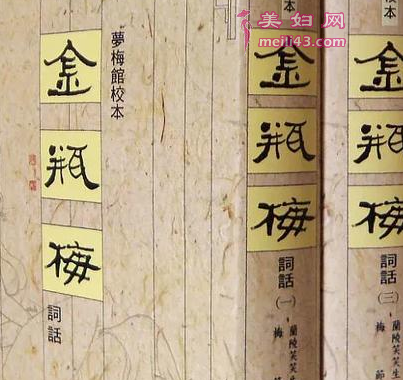 美妇网
meili43.com
金瓶梅
詞話
夢梅館校本
校本
金瓶梅
詞話
(一)
蘭陵笑笑生
梅
校本
金瓶梅
詞話
(三)
蘭陵笑笑生
梅節